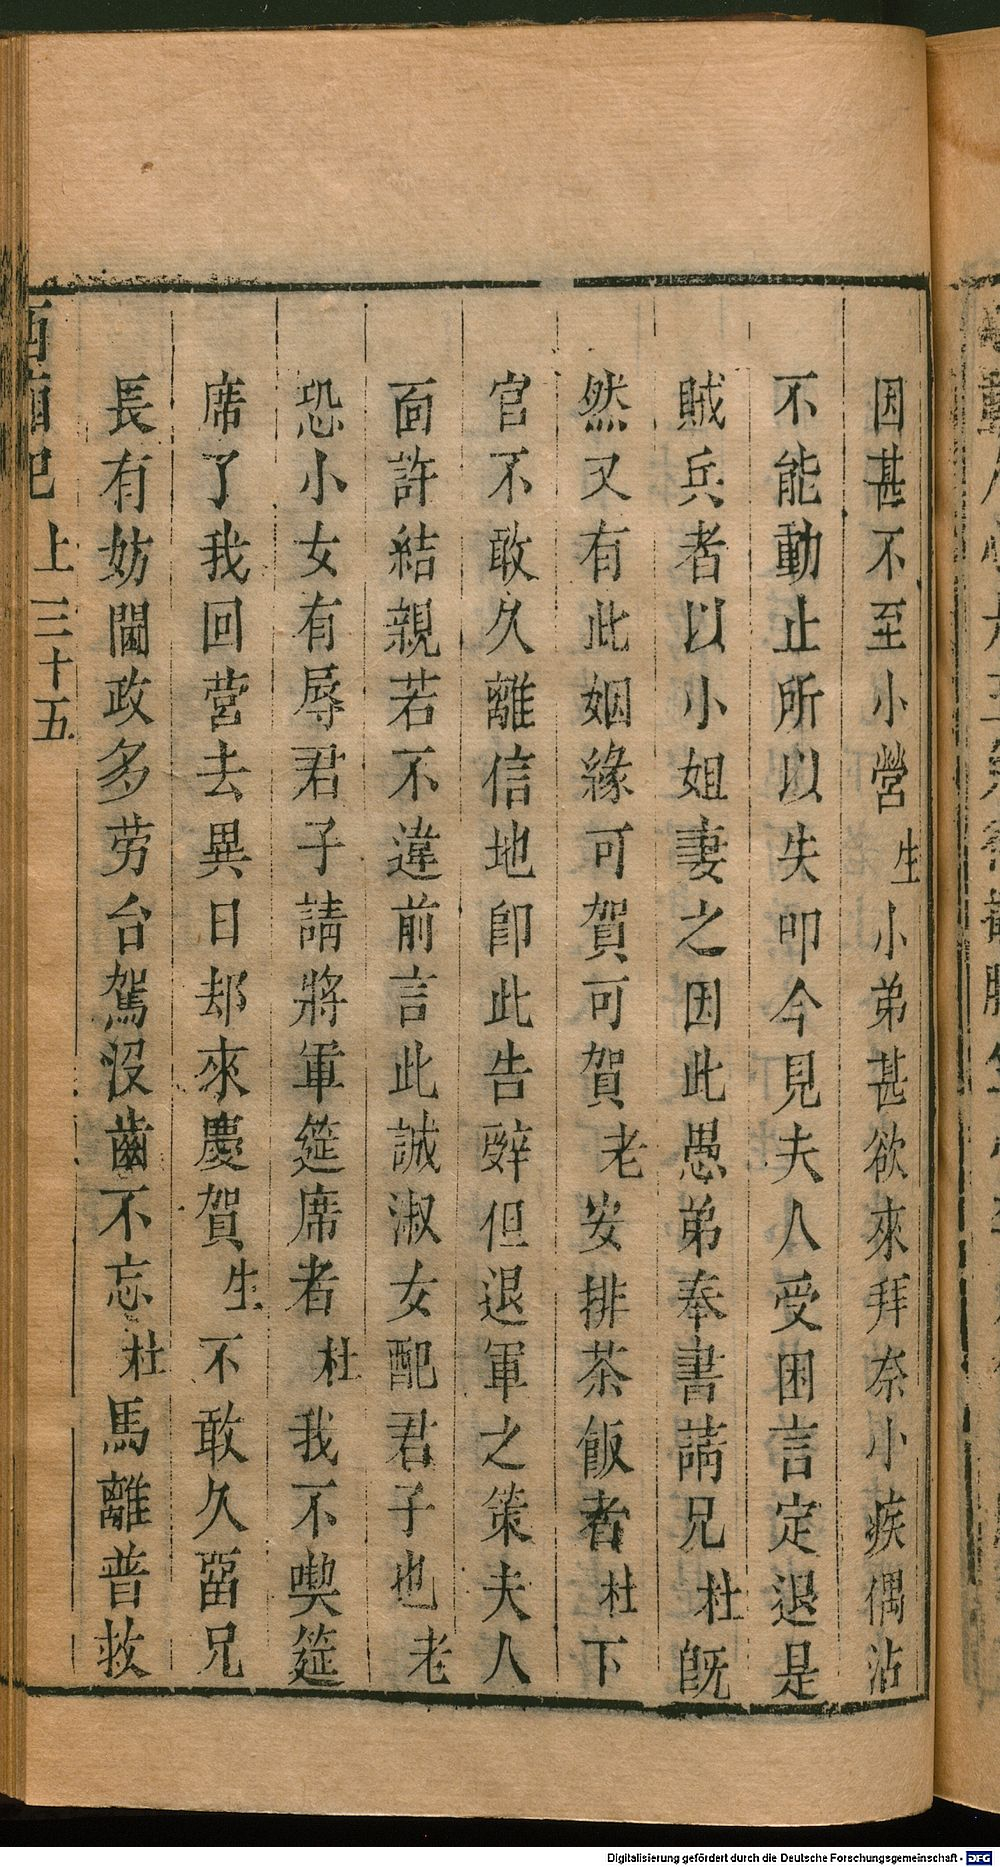 因甚不至小營生小弟甚欲來拜奈小疾偶沾
不能動止所以失叩今見夫人受困言定退是
賊兵者以小姐妻之因此愚弟奉書請兄杜旣
然又有此姻緣可賀可賀老安排茶飯者杜下
官不敢久離信地卽此告辤但退軍之策夫人
面許結親若不違前言此誠淑女配君子也老
恐小女有辱君子請將軍筵席者杜我不喫筵
席了我回营去異日却來慶賀生不敢久畱兄
長有妨閫政多劳台駕没齒不忘杜馬離普救
西廂記 上 三十五
Digitalisierung gefördert durch die Deutsche Forschungsgemeinschaft - DFG